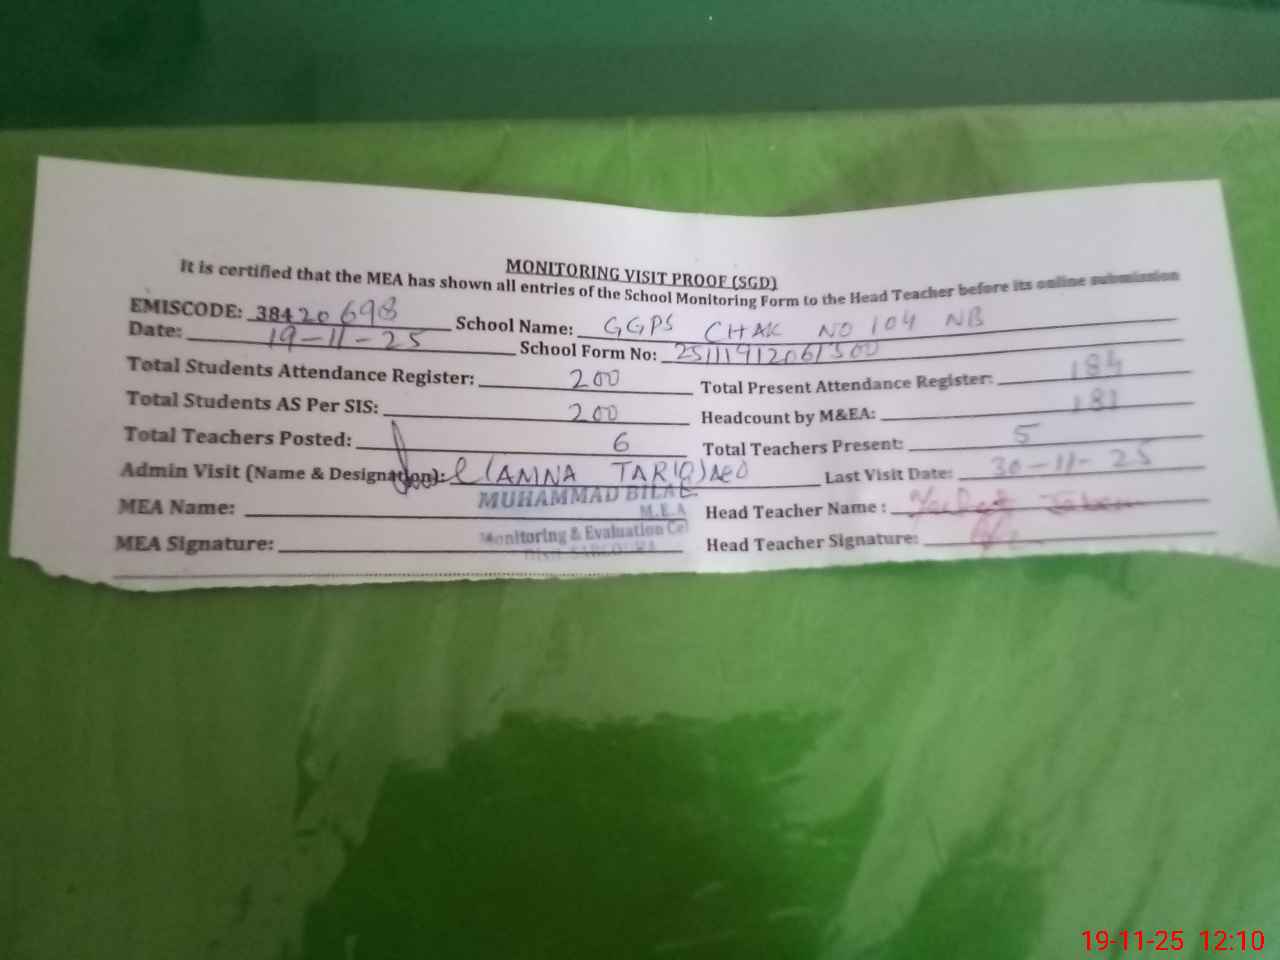 MONITORING VISIT PROOF (SGD)
It is certified that the MEA has shown all entries of the School Monitoring Form to the Head Teacher before its online submission
EMISCODE: 38420698 School Name: GGPS CHAK NO 104 NB
Date: 19-11-25 School Form No: 25111912061300
Total Students Attendance Register: 200 Total Present Attendance Register: 184
Total Students AS Per SIS: 200 Headcount by M&EA: 181
Total Teachers Posted: 6 Total Teachers Present: 5
Admin Visit (Name & Designation): (AMNA TARIQ) AEO Last Visit Date: 30-11-25
MUHAMMAD BILAL
MEA Name: M.E.A Head Teacher Name :
Monitoring & Evaluation Cel
MEA Signature: Head Teacher Signature:
19-11-25 12:10